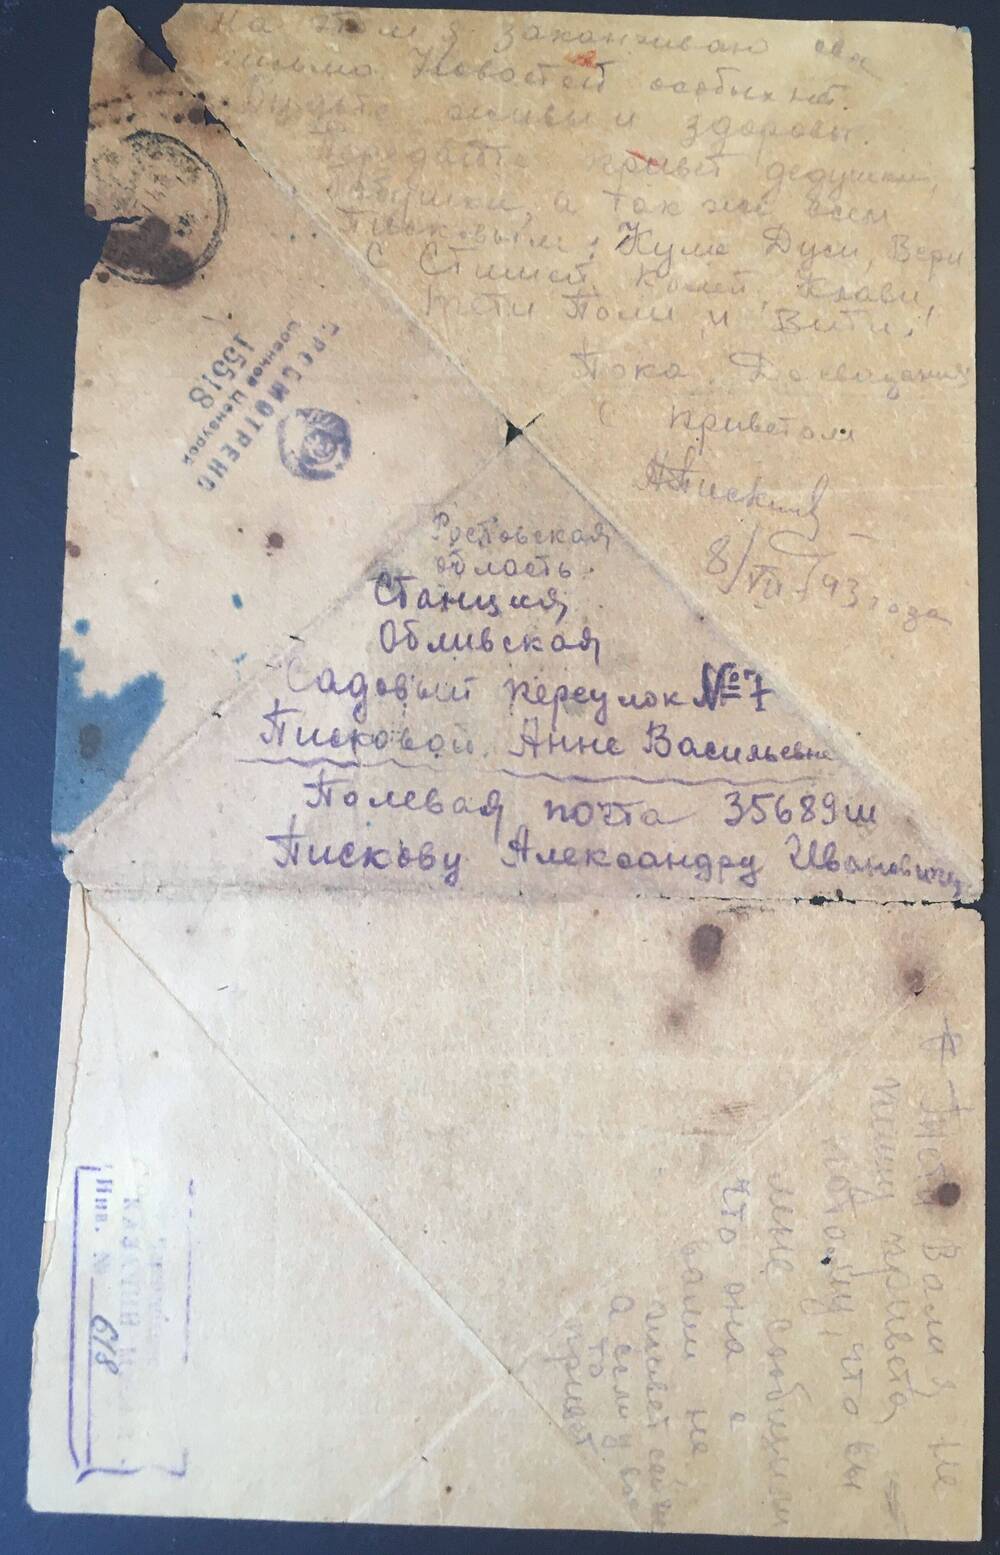 На этом я заканчиваю
письмо. Новостей особых нет.
Будьте живы и здоровы.
Передайте привет дедушки,
бабушки, а так же всем
Писковым: Куме Дуси, Вери
С Стишей, Колей, Клави,
тети Поли и Вити!
Пока. До свидания
С приветом
АПисков
8/VII-43 года
ПРОСМОТРЕНО
Военной Цензурой
15518
Ростовская
область.
Станция
Обливская
Садовый переулок №7
Писковой Анне Васильевне
Полевая почта 35689ш
Пискову Александру Ивановичу
Тети Вали я не
пишу привета,
потому, что вы
мне сообщили
что она с
вами не
живет
а если
то
привет.
Инв. № 618